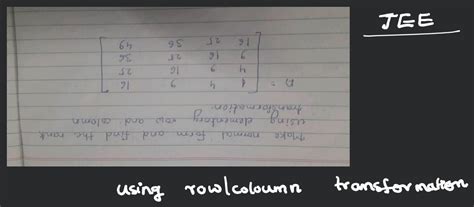 JEE
Make normal form and find the rank
using elementary row and column
transformation.
D = 1 4 9 16
4 9 16 25
9 16 25 36
16 25 36 49
using row/coloumn transformation